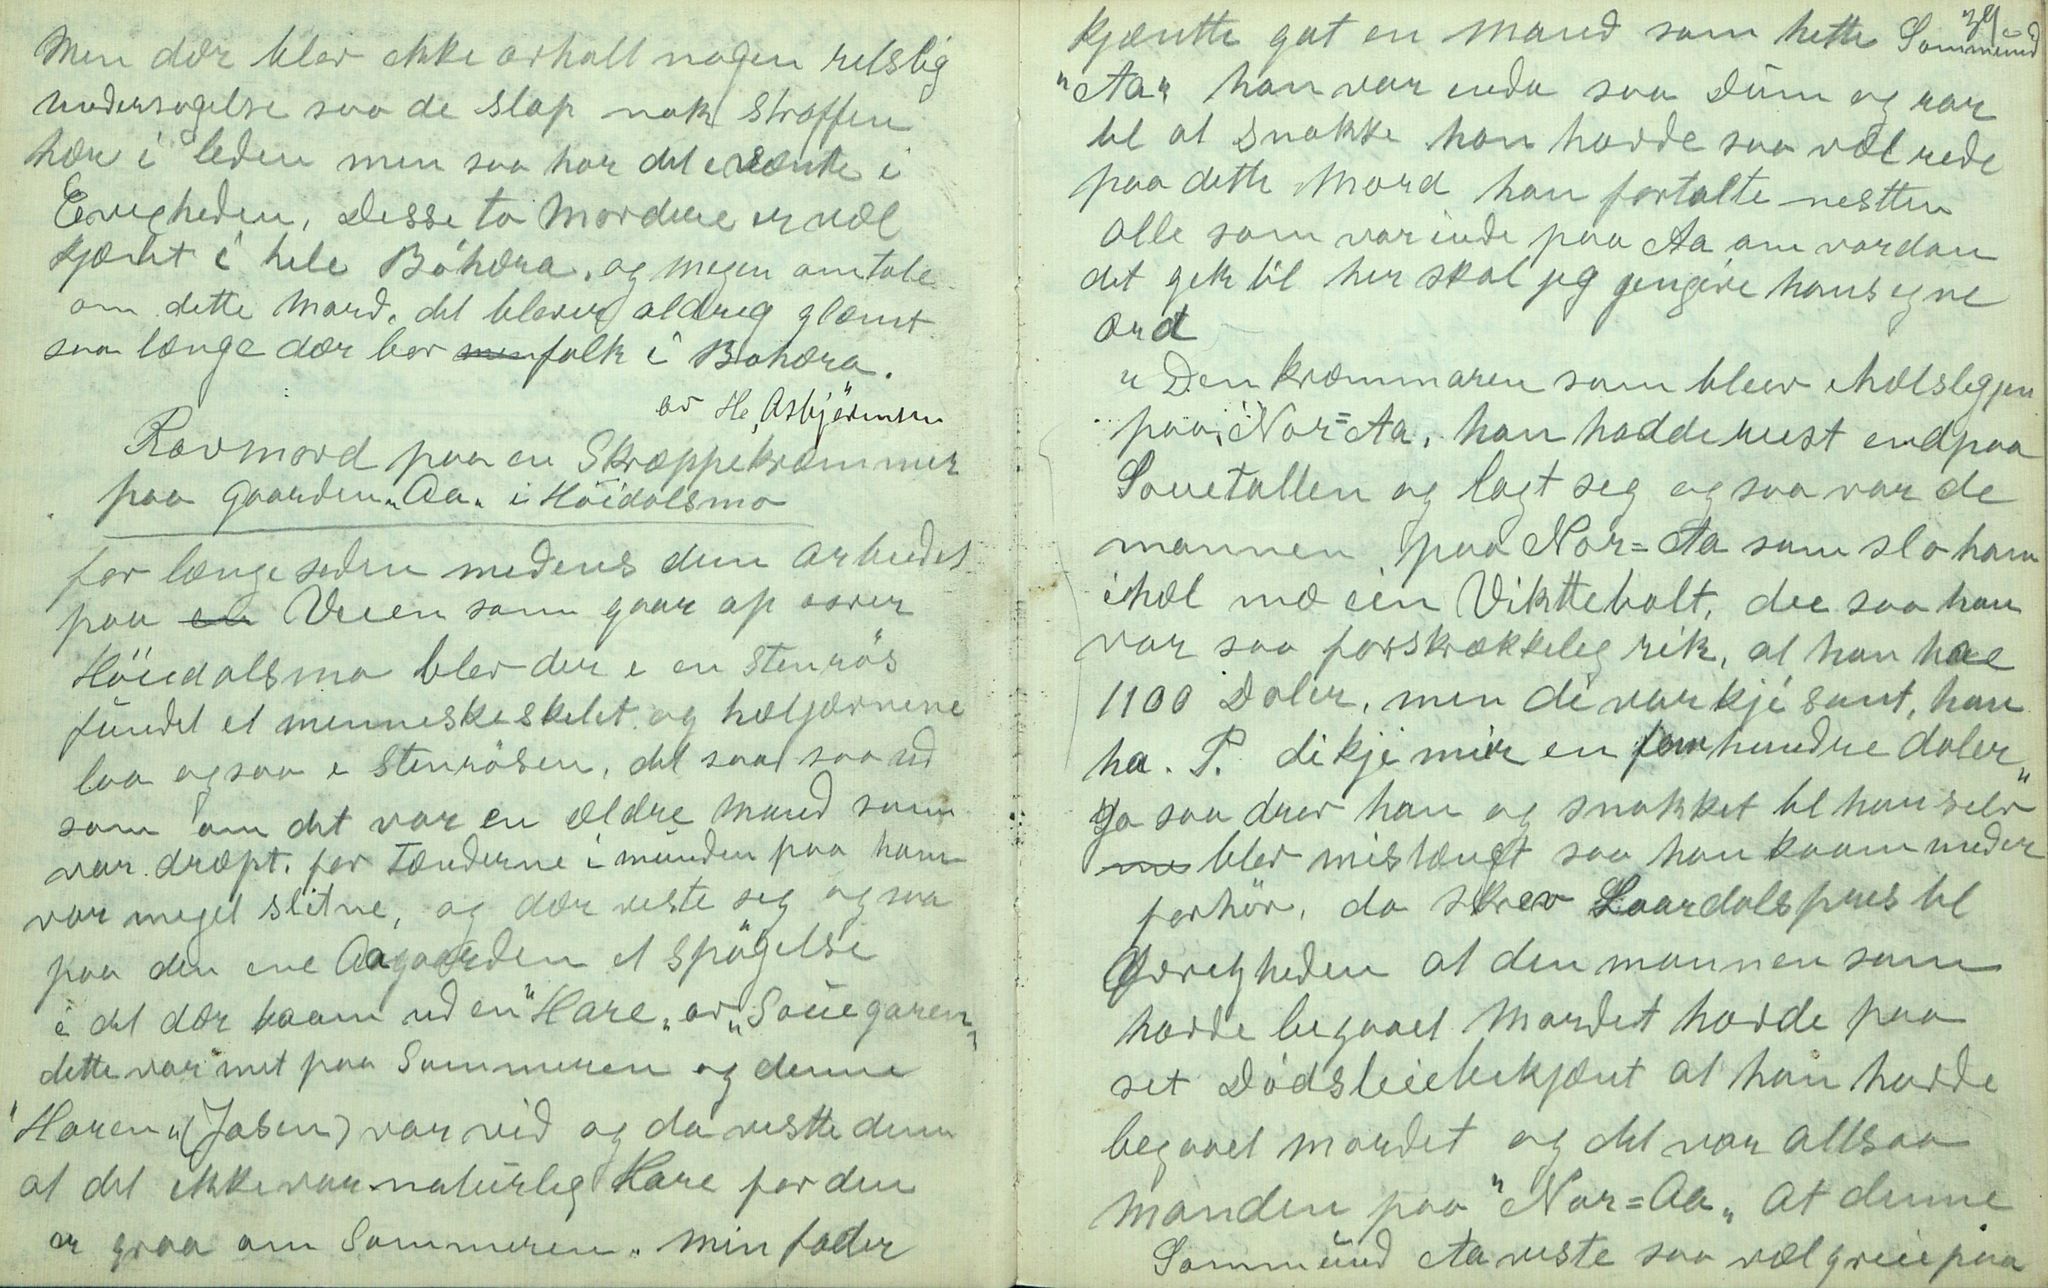 Men dær blev ikke avhalt nogen retslig
undersøgelse saa de slap nok straffen
hær i leden men saa har det i vænte i
Evigheden, Disse to Mordere er væl
kjænt i hele Bøhæra, og megen omtale
om dette Mord. det bliver aldrig glæmt
saa længe dær bor folk i Bøhæra.
av H. Asbjörnsen
Rovmord paa en Skræppekræmmer
paa gaarden „Aa„ i Höidalsmo
for længe seden medens dem arbeidet
paa Veien som gaar op over
Höiedalsmo blev der i en stenrös
fundet et menneskeskelet og hæljærnene
laa ogsaa i stenrösen, det saa saa ud
som om det var en ældre Mand som
var dræpt. for Tænderne i munden paa ham
var meget slitne, og dær viste seg ogsaa
paa den ene Aagaarden et spögelse
i det dær kaam ud en "Hare„ av „Souegaren„
dette var met paa Sommeren og denne
"Haren„ (Jasen) var vid og da vistte dem
at det ikke var naturlig Hare for den
er graa om Sommeren. min fader
39
kjæntte gat en Mand som hette Sommund
"Aa„ han var enda saa Dum og rar
til at snakke han havde saa væl rede
paa dette Mord han fortalte nestten
alle som var inde paa Aa om vordan
det gek til her skal jeg gjengive hans egne
ord
„ Den kræmmaren som bleiv ihælslegjen
paa, Nor=Aa, han hadde reist endpaa
Souetallen og lagt seg og saa var de
mannen paa Nor=Aa som slo ham
ihæl mæ ein Vikttebolt, dei saa han
var saa forskrækkeleg rik, at han hae
1100 Daler, men di var kji sant, han
ha. P. di kji meir en fem hundre daler„
Ja saa drev han og snakket til han selv
blev mistængt saa han kaam under
forhör, da skrev Laardalspres til
Øvrigheden at den mannen som
havde begaaet Mordet havde paa
set Dødsleie bekjænt at han havde
begaaet mordet og det var altsaa
Manden paa "Nor=Aa„ at denne
Sommund Aa viste saa væl greie paa